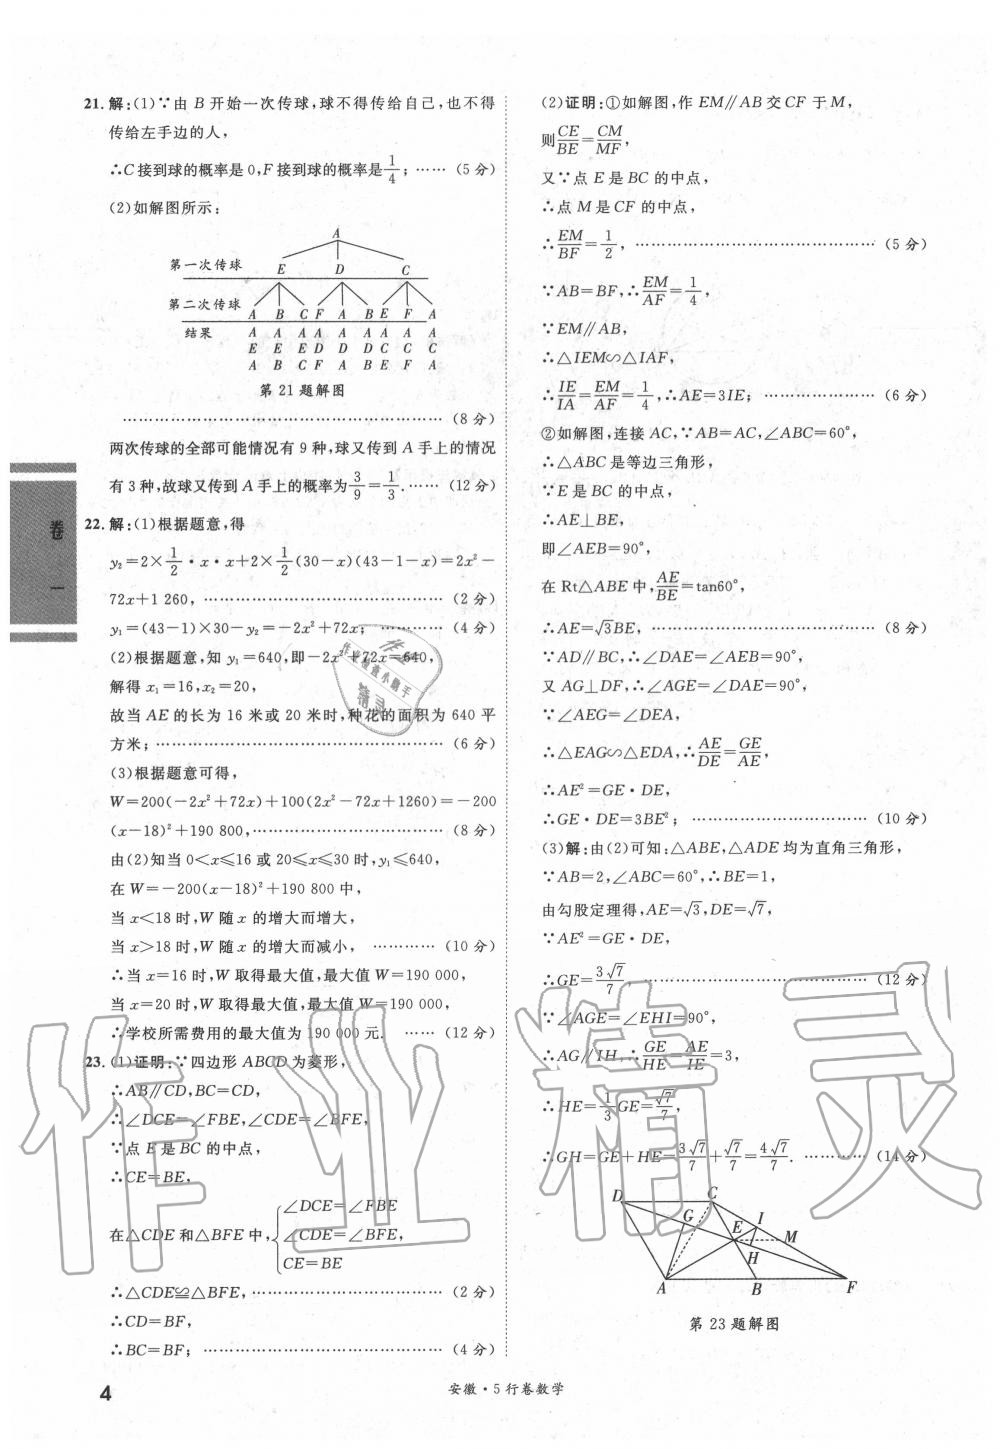 21. 解:(1)∵由 B 开始一次传球,球不得传给自己,也不得
传给左手边的人,
∴C 接到球的概率是 0,F 接到球的概率是1/4; …… (5 分)
(2)如解图所示:
A
第一次传球 E D C
第二次传球 A B C F A B E F A
结果 A A A A A A A A A
E E E D D D C C C
A B C F A B E F A
第 21 题解图
…………………………………………… (8 分)
两次传球的全部可能情况有 9 种,球又传到 A 手上的情况
有 3 种,故球又传到 A 手上的概率为3/9=1/3. …… (12 分)
22. 解:(1)根据题意,得
y₂=2×1/2·x·x+2×1/2(30-x)(43-1-x)=2x²-
72x+1 260, ……………………………… (2 分)
y₁=(43-1)×30-y₂=-2x²+72x; ………… (4 分)
(2)根据题意,知 y₁=640,即-2x²+72x=640,
解得 x₁=16,x₂=20,
故当 AE 的长为 16 米或 20 米时,种花的面积为 640 平
方米; ……………………………………… (6 分)
(3)根据题意可得,
W=200(-2x²+72x)+100(2x²-72x+1260)=-200
(x-18)²+190 800, ………………………… (8 分)
由(2)知当 0<x≤16 或 20≤x≤30 时,y₁≤640,
在 W=-200(x-18)²+190 800 中,
当 x<18 时,W 随 x 的增大而增大,
当 x>18 时,W 随 x 的增大而减小, ………… (10 分)
∴当 x=16 时,W 取得最大值,最大值 W=190 000,
当 x=20 时,W 取得最大值,最大值 W=190 000,
∴学校所需费用的最大值为 190 000 元. …… (12 分)
23. (1)证明:∵四边形 ABCD 为菱形,
∴AB∥CD,BC=CD,
∴∠DCE=∠FBE,∠CDE=∠BFE,
∵点 E 是 BC 的中点,
∴CE=BE,
∠DCE=∠FBE
在△CDE 和△BFE 中,{∠CDE=∠BFE,
CE=BE
∴△CDE≌△BFE, ………………………… (2 分)
∴CD=BF,
∴BC=BF; ………………………………… (4 分)
(2)证明:①如解图,作 EM∥AB 交 CF 于 M,
则CE/BE=CM/MF,
又∵点 E 是 BC 的中点,
∴点 M 是 CF 的中点,
∴EM/BF=1/2, ………………………………… (5 分)
∵AB=BF,∴EM/AF=1/4,
∵EM∥AB,
∴△IEM∽△IAF,
∴IE/IA=EM/AF=1/4,∴AE=3IE; ……………… (6 分)
②如解图,连接 AC,∵AB=AC,∠ABC=60°,
∴△ABC 是等边三角形,
∵E 是 BC 的中点,
∴AE⊥BE,
即∠AEB=90°,
在 Rt△ABE 中,AE/BE=tan60°,
∴AE=√3BE, ……………………………… (8 分)
∵AD∥BC,∴∠DAE=∠AEB=90°,
又 AG⊥DF,∴∠AGE=∠DAE=90°,
∵∠AEG=∠DEA,
∴△EAG∽△EDA,∴AE/DE=GE/AE,
∴AE²=GE·DE,
∴GE·DE=3BE²; ………………………… (10 分)
(3)解:由(2)可知:△ABE,△ADE 均为直角三角形,
∵AB=2,∠ABC=60°,∴BE=1,
由勾股定理得,AE=√3,DE=√7,
∵AE²=GE·DE,
∴GE=3√7/7, ……………………………… (12 分)
∵∠AGE=∠EHI=90°,
∴AG∥IH,∴GE/HE=AE/IE=3,
∴HE=1/3GE=√7/7,
∴GH=GE+HE=3√7/7+√7/7=4√7/7. ………… (14 分)
D C
G I
E M
H
A B F
第 23 题解图
卷
一
4
安徽·5 行卷数学
作业精灵